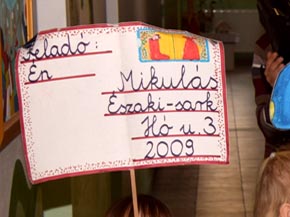 Feladó:
Én
Mikulás
Északi-sark
Hó u. 3
2009